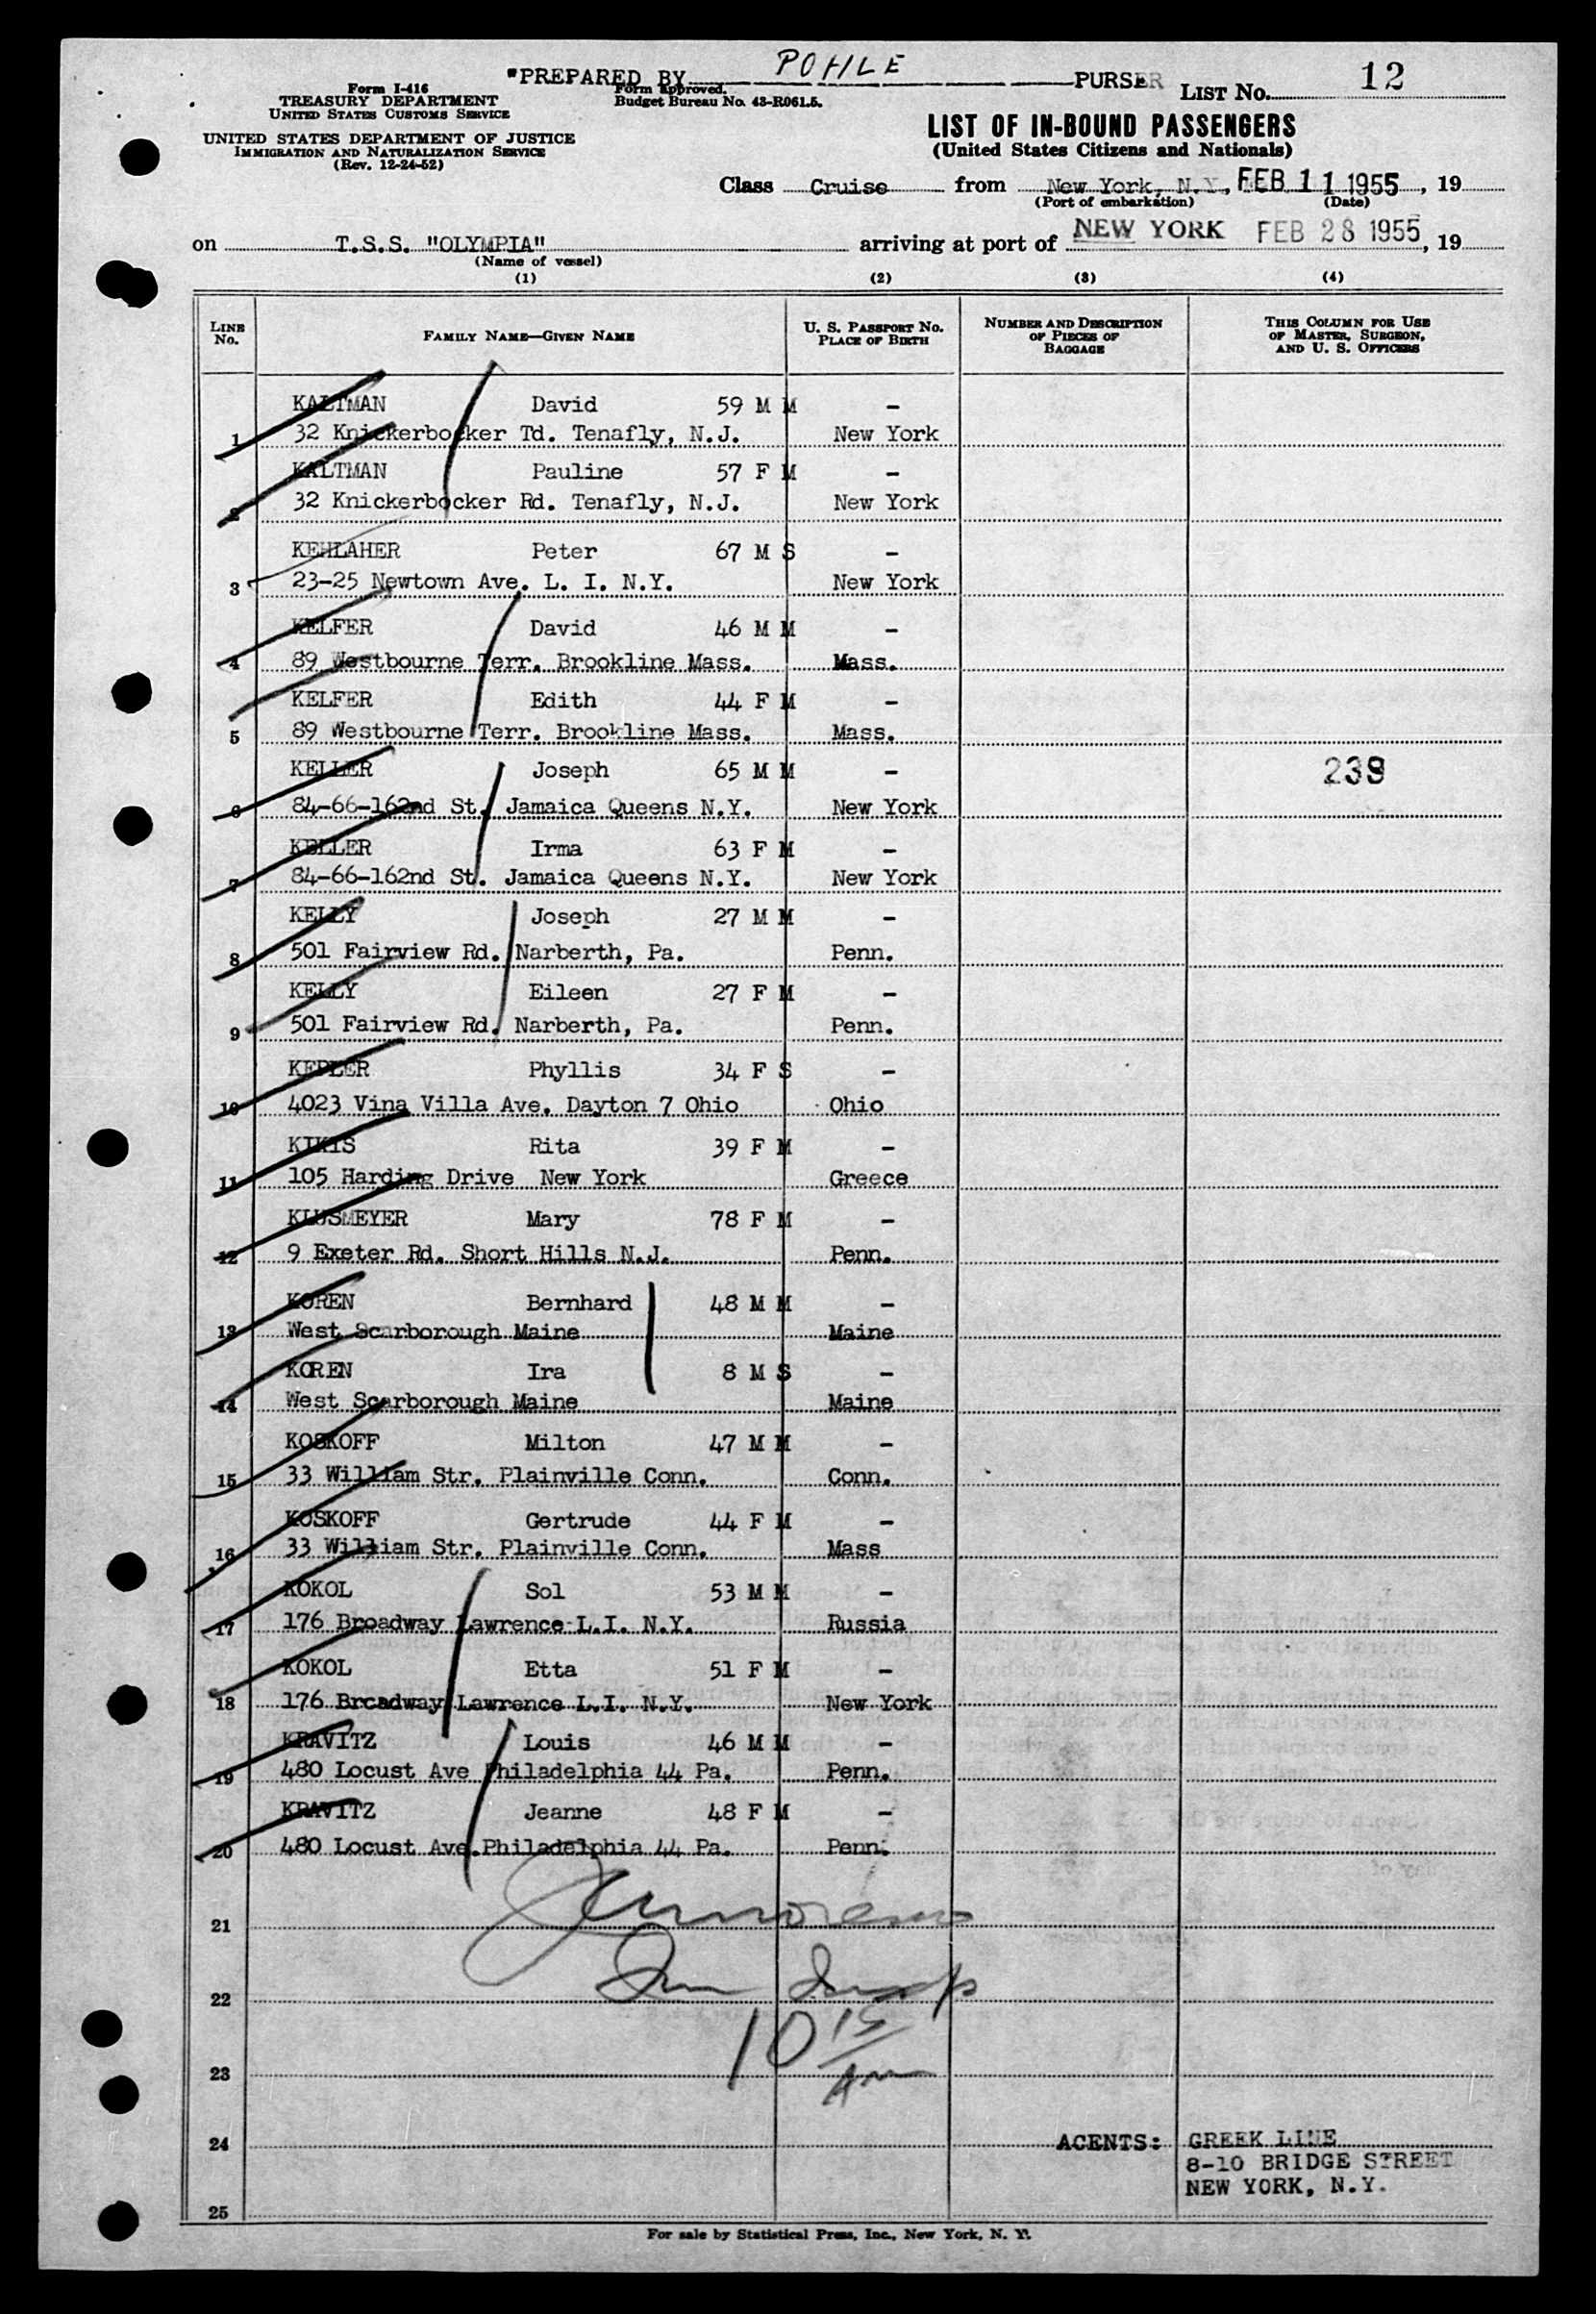 "PREPARED BY POHLE PURSER LIST No. 12
Form I-416
TREASURY DEPARTMENT
UNITED STATES CUSTOMS SERVICE
Form Approved.
Budget Bureau No. 43-R061.5.
UNITED STATES DEPARTMENT OF JUSTICE
IMMIGRATION AND NATURALIZATION SERVICE
(Rev. 12-24-52)
LIST OF IN-BOUND PASSENGERS
(United States Citizens and Nationals)
Class Cruise from New York, N.Y., FEB 11 1955, 19
(Port of embarkation) (Date)
on T.S.S. "OLYMPIA" arriving at port of NEW YORK FEB 28 1955, 19
(Name of vessel)
(1) (2) (3) (4)
LINE No. FAMILY NAME—GIVEN NAME U. S. PASSPORT No. PLACE OF BIRTH NUMBER AND DESCRIPTION OF PIECES OF BAGGAGE THIS COLUMN FOR USE OF MASTER, SURGEON, AND U. S. OFFICERS
KALTMAN David 59 M M -
1 32 Knickerbocker Td. Tenafly, N.J. New York
KALTMAN Pauline 57 F M -
2 32 Knickerbocker Rd. Tenafly, N.J. New York
KEHLAHER Peter 67 M S -
3 23-25 Newtown Ave. L. I. N.Y. New York
KELFER David 46 M M -
4 89 Westbourne Terr. Brookline Mass. Mass.
KELFER Edith 44 F M -
5 89 Westbourne Terr. Brookline Mass. Mass.
KELLER Joseph 65 M M - 239
6 84-66-162nd St. Jamaica Queens N.Y. New York
KELLER Irma 63 F M -
7 84-66-162nd St. Jamaica Queens N.Y. New York
KELLY Joseph 27 M M -
8 501 Fairview Rd. Narberth, Pa. Penn.
KELLY Eileen 27 F M -
9 501 Fairview Rd. Narberth, Pa. Penn.
KEPLER Phyllis 34 F S -
10 4023 Vina Villa Ave. Dayton 7 Ohio Ohio
KIKIS Rita 39 F M -
11 105 Harding Drive New York Greece
KLUSMEYER Mary 78 F M -
12 9 Exeter Rd. Short Hills N.J. Penn.
KOREN Bernhard 48 M M -
13 West Scarborough Maine Maine
KOREN Ira 8 M S -
14 West Scarborough Maine Maine
KOSKOFF Milton 47 M M -
15 33 William Str. Plainville Conn. Conn.
KOSKOFF Gertrude 44 F M -
16 33 William Str. Plainville Conn. Mass
KOKOL Sol 53 M M -
17 176 Broadway Lawrence L.I. N.Y. Russia
KOKOL Etta 51 F M -
18 176 Broadway Lawrence L.I. N.Y. New York
KRAVITZ Louis 46 M M -
19 480 Locust Ave Philadelphia 44 Pa. Penn.
KRAVITZ Jeanne 48 F M -
20 480 Locust Ave. Philadelphia 44 Pa. Penn.
21
22
10 15
Am
23
24 AGENTS: GREEK LINE
8-10 BRIDGE STREET
NEW YORK, N.Y.
25
For sale by Statistical Press, Inc., New York, N. Y.